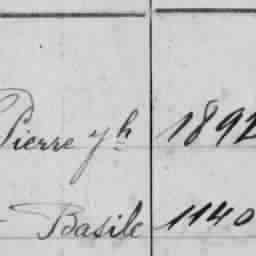 Pierre yh 1892
Basile 1140